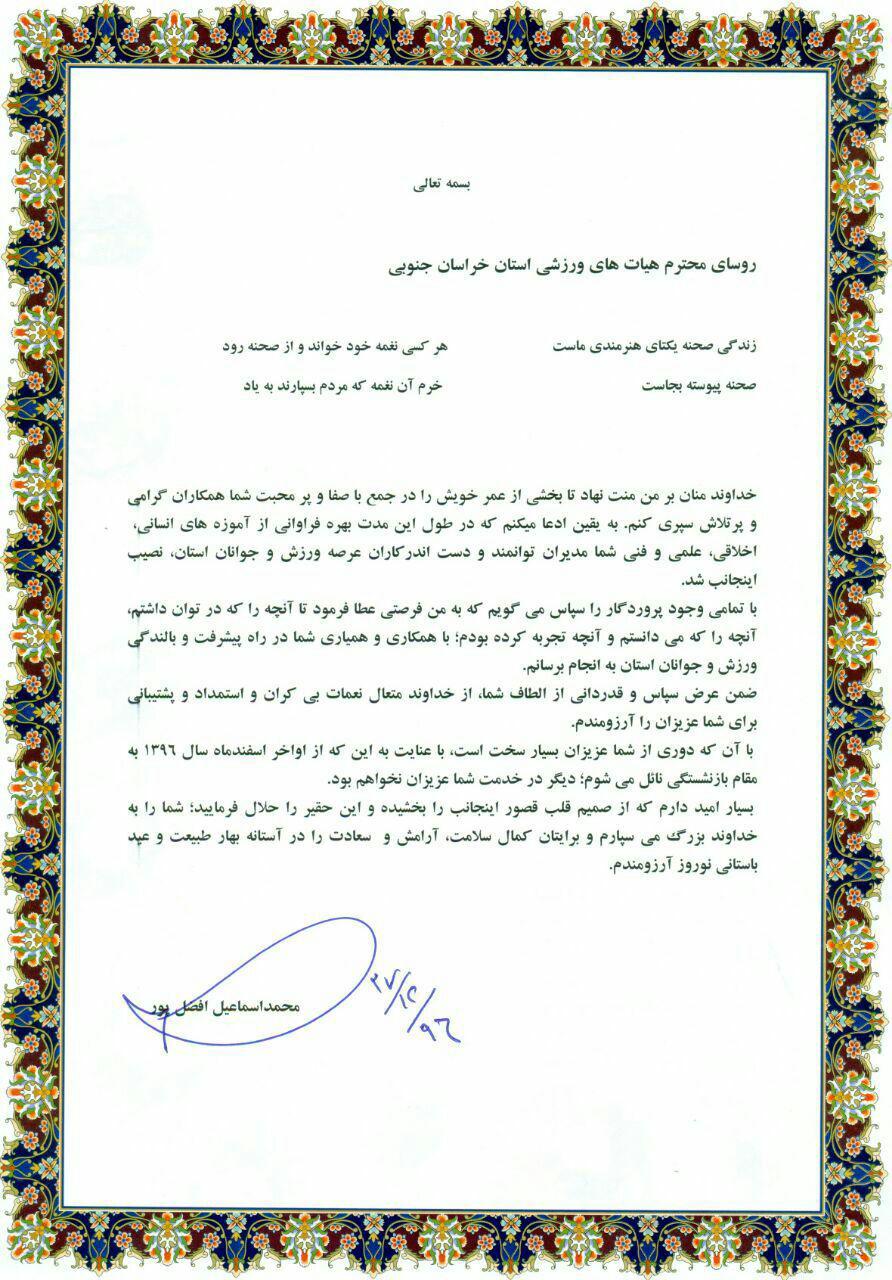 بسمه تعالی
روسای محترم هیات های ورزشی استان خراسان جنوبی
زندگی صحنه یکتای هنرمندی ماست هر کسی نغمه خود خواند و از صحنه رود
صحنه پیوسته بجاست خرم آن نغمه که مردم بسپارند به یاد
خداوند منان بر من منت نهاد تا بخشی از عمر خویش را در جمع با صفا و پر محبت شما همکاران گرامی
و پرتلاش سپری کنم. به یقین ادعا میکنم که در طول این مدت بهره فراوانی از آموزه های انسانی،
اخلاقی، علمی و فنی شما مدیران توانمند و دست اندرکاران عرصه ورزش و جوانان استان، نصیب
اینجانب شد.
با تمامی وجود پروردگار را سپاس می گویم که به من فرصتی عطا فرمود تا آنچه را که در توان داشتم،
آنچه را که می دانستم و آنچه تجربه کرده بودم؛ با همکاری و همیاری شما در راه پیشرفت و بالندگی
ورزش و جوانان استان به انجام برسانم.
ضمن عرض سپاس و قدردانی از الطاف شما، از خداوند متعال نعمات بی کران و استمداد و پشتیبانی
برای شما عزیزان را آرزومندم.
با آن که دوری از شما عزیزان بسیار سخت است، با عنایت به این که از اواخر اسفندماه سال ۱۳۹٦ به
مقام بازنشستگی نائل می شوم؛ دیگر در خدمت شما عزیزان نخواهم بود.
بسیار امید دارم که از صمیم قلب قصور اینجانب را بخشیده و این حقیر را حلال فرمایید؛ شما را به
خداوند بزرگ می سپارم و برایتان کمال سلامت، آرامش و سعادت را در آستانه بهار طبیعت و عید
باستانی نوروز آرزومندم.
محمداسماعیل افضل پور
۲۷/۱۲/۹٦